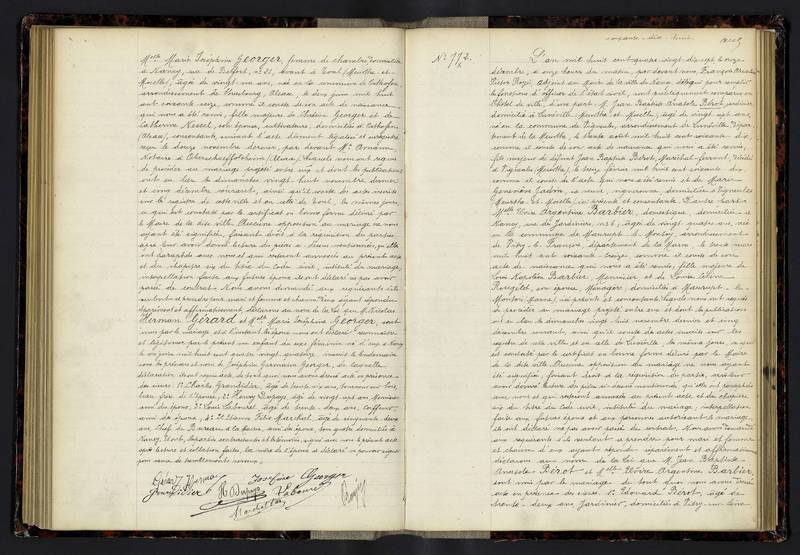 Melle Marie Joséphine Georger, femme de chambre, domiciliée
à Nancy, rue de Belfort, n° 22, avant à Toul (Meurthe-et-
Moselle), âgée de vingt un ans, née en la commune de
arrondissement de Strasbourg, Alsace, le deux juin mil huit
cent soixante seize, comme il conste de son acte de naissance
qui nous a été remis, fille majeure de Georger et de
Catherine Nessel, son épouse, cultivateurs, domiciliés à
(Alsace), consentants, suivant l'acte dûment légalisé et enregistré
reçu le douze novembre dernier, par devant Me
Notaire à Oberschaeffolsheim (Alsace). Lesquels nous ont requis
de procéder au mariage projeté entre eux et dont les publications
ont eu lieu les dimanches vingt huit novembre dernier
et cinq décembre courant, ainsi qu'il conste des actes inscrits
sur les registres de cette ville et en celle de Toul, les mêmes jours,
ce qui est constaté par le certificat en bonne forme délivré par
le Maire de la dite ville. Aucune opposition au mariage ne nous
ayant été signifiée, faisant droit à la réquisition des parties,
après leur avoir donné lecture des pièces ci-dessus mentionnées, qu'elles
ont paraphées avec nous et qui resteront annexées au présent acte
et du chapitre six du titre du Code civil, intitulé du mariage,
interpellation faite aux futurs époux, ils ont déclaré ne pas avoir
passé de contrat. Nous avons demandé aux requérants s'ils
veulent se prendre pour mari et femme et chacun d'eux ayant répondu
séparément et affirmativement, déclarons au nom de la loi que M. Nicolas
Herman Gérard et Melle Marie Joséphine Georger, sont
unis par le mariage et à l'instant les époux nous ont déclaré reconnaître
et légitimer par le présent un enfant du sexe féminin né d'eux à Nancy
le juin mil huit cent quatre vingt quatorze inscrit le lendemain
sous les prénoms et nom de Joséphine Germaine Georger, de laquelle
déclaration dont nous acte, de tout quoi nous avons dressé acte en présence
des sieurs: 1° Charles Grandidier, âgé de trente six ans,
beau frère de l'époux, 2° Henry Dupays, âgé de vingt sept ans, Menuisier,
ami des époux, 3° Louis Labouré, âgé de trente deux ans, coiffeur,
ami des époux, & 4° Etienne Félix Marchal, âgé de cinquante deux
ans, chef de Bureau à la Mairie, ami des époux, tous quatre domiciliés à
Nancy. Et ont, les parties contractantes et les témoins, signé avec nous le présent acte
après lecture et collation faites,
pour cause de
Gérard Herman
Joséphine Georger
Grandidier
H Dupays
Labouré
Marchal Félix
soixante-dix-huit
N° 772.
L'an mil huit cent quatre vingt dix sept, le onze
décembre, à onze heures du matin, par devant nous, François
adjoint au Maire de la ville de Nancy délégué pour remplir
les fonctions d'officier de l'état civil, ont publiquement comparu en
l'hôtel de ville, d'une part: M. Jean Baptiste Anatole Pérot, jardinier,
domicilié à Lunéville, Meurthe-et-Moselle, âgé de vingt sept ans,
né en la commune de Vigneulles, arrondissement de Lunéville, dépar-
tement de la Meurthe, le trente août mil huit cent soixante-dix,
comme il conste de son acte de naissance qui nous a été remis,
fils majeur de défunt Jean Baptiste Pérot, Maréchal-ferrant, décédé
à Vigneulles (Meurthe), le treize février mil huit cent soixante dix
comme il conste de l'acte qui nous a été remis et de Marie-
Geneviève sa veuve, vigneronne, domiciliée à Vigneulles
Meurthe-et-Moselle, ici présente et consentante. D'autre part:
Melle Elvire Argentine Barbier, domestique, domiciliée à
Nancy, rue du Jardinier, n° 6, âgée de vingt quatre ans, née
en la commune de Maurupt-le-Montoy, arrondissement
de Vitry-le-François, département de la Marne, le treize mars
mil huit cent soixante treize, comme il conste de son
acte de naissance qui nous a été remis, fille majeure de
Louis Napoléon Barbier, Menuisier, et de Louise
son épouse, Ménagère, domiciliés à Maurupt-le-
Montoy (Marne), ici présents et consentants. Lesquels nous ont requis
de procéder au mariage projeté entre eux et dont les publications
ont eu lieu les dimanches vingt huit novembre dernier et cinq
décembre courant, ainsi qu'il conste des actes inscrits sur les
registres de cette ville et en celle de Lunéville, les mêmes jours, ce qui
est constaté par le certificat en bonne forme délivré par le Maire
de la dite ville. Aucune opposition au mariage ne nous ayant
été signifiée, faisant droit à la réquisition des parties, après leur
avoir donné lecture des pièces ci-dessus mentionnées, qu'elles ont paraphées
avec nous et qui resteront annexées au présent acte, et du chapitre
six du titre du Code civil, intitulé du mariage, interpellation
faite aux futurs époux et aux personnes autorisant le mariage,
ils ont déclaré ne pas avoir passé de contrat. Nous avons demandé
aux requérants s'ils veulent se prendre pour mari et femme
et chacun d'eux ayant répondu séparément et affirmativement
déclarons au nom de la loi que M. Jean Baptiste
Anatole Pérot et Melle Elvire Argentine Barbier,
sont unis par le mariage. De tout quoi nous avons dressé
acte en présence des sieurs: 1° Edouard Pérot, âgé de
trente-deux ans, Jardinier, domicilié à Vitry-sur-Seine